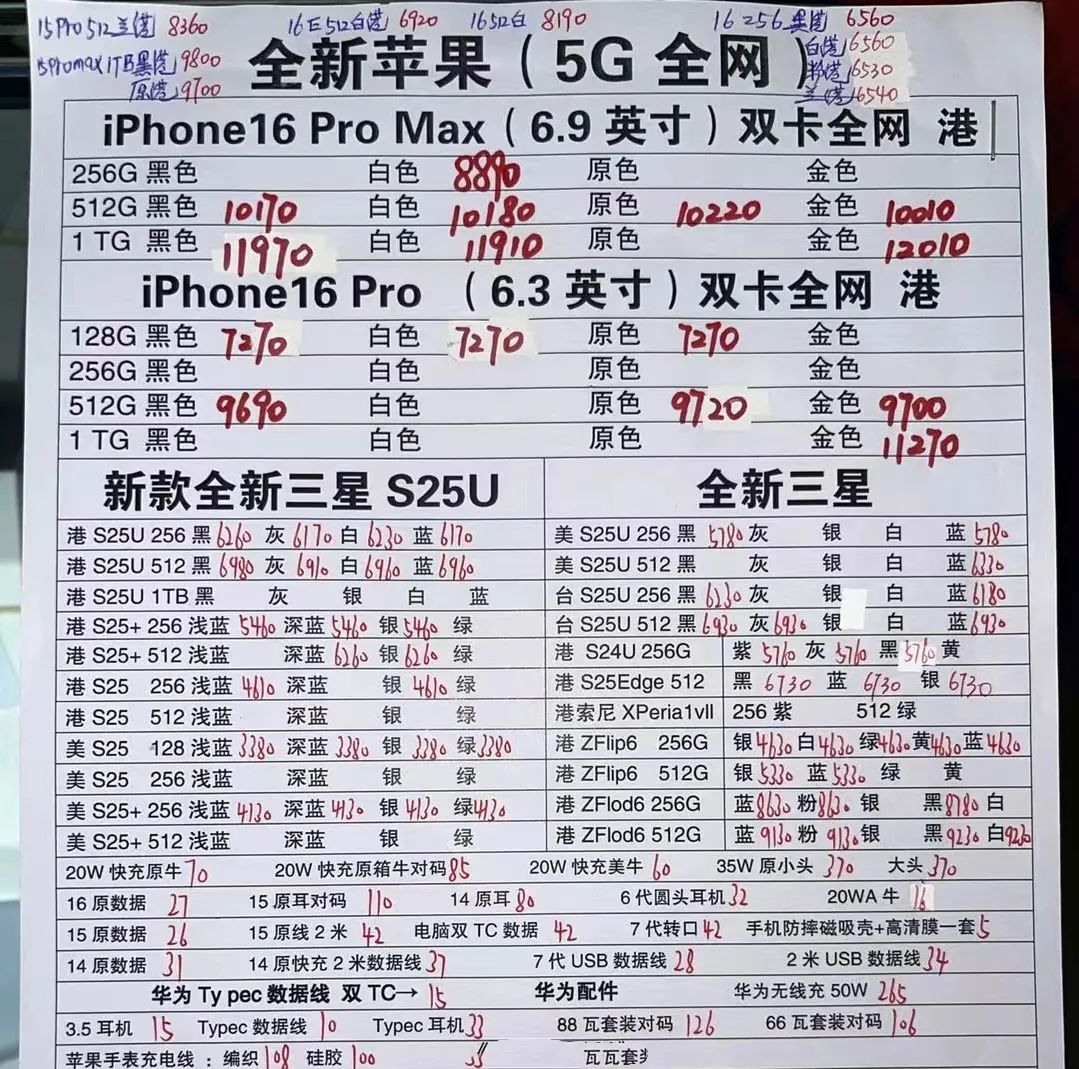 15Pro512兰港 8360 16E512白港 6920 16 512白 8190 16 256黑港 6560
白港 6560
15Promax 1TB黑港 9800 全新苹果（5G 全网） 粉港 6530
原港 9700 兰港 6540
iPhone16 Pro Max（6.9 英寸）双卡全网 港
256G 黑色 白色 8890 原色 金色
512G 黑色 10170 白色 10180 原色 10220 金色 10010
1 TG 黑色 11970 白色 11910 原色 金色 12010
iPhone16 Pro （6.3 英寸）双卡全网 港
128G 黑色 7270 白色 7270 原色 7270 金色
256G 黑色 白色 原色 金色
512G 黑色 9690 白色 原色 9720 金色 9700
1 TG 黑色 白色 原色 金色 11270
新款全新三星 S25U
港 S25U 256 黑 6260 灰 6170 白 6230 蓝 6170
港 S25U 512 黑 6980 灰 6910 白 6960 蓝 6960
港 S25U 1TB 黑 灰 银 白 蓝
港 S25+ 256 浅蓝 5460 深蓝 5460 银 5460 绿
港 S25+ 512 浅蓝 深蓝 6260 银 6260 绿
港 S25 256 浅蓝 4610 深蓝 银 4610 绿
港 S25 512 浅蓝 深蓝 银 绿
美 S25 128 浅蓝 3380 深蓝 3380 银 3380 绿 3380
美 S25 256 浅蓝 深蓝 银 绿
美 S25+ 256 浅蓝 4130 深蓝 4130 银 4130 绿 4130
美 S25+ 512 浅蓝 深蓝 银 绿
全新三星
美 S25U 256 黑 5780 灰 银 白 蓝 5780
美 S25U 512 黑 灰 银 白 蓝 6330
台 S25U 256 黑 6230 灰 银 白 蓝 6180
台 S25U 512 黑 6930 灰 6930 银 白 蓝 6930
港 S24U 256G 紫 5760 灰 5760 黑 5760 黄
港 S25Edge 512 黑 6730 蓝 6730 银 6730
港索尼 XPeria1vll 256 紫 512 绿
港 ZFlip6 256G 银 4630 白 4630 绿 4630 黄 4630 蓝 4630
港 ZFlip6 512G 银 5330 蓝 5330 绿 黄
港 ZFlod6 256G 蓝 8630 粉 8630 银 黑 8780 白
港 ZFlod6 512G 蓝 9130 粉 9130 银 黑 9230 白 9230
20W 快充原牛 70 20W 快充原箱牛对码 85 20W 快充美牛 60 35W 原小头 370 大头 370
16 原数据 27 15 原耳对码 110 14 原耳 80 6 代圆头耳机 32 20WA 牛 16
15 原数据 26 15 原线 2 米 42 电脑双 TC 数据 42 7 代转口 42 手机防摔磁吸壳+高清膜一套 5
14 原数据 31 14 原快充 2 米数据线 37 7 代 USB 数据线 28 2 米 USB 数据线 34
华为 Ty pec 数据线 双 TC→ 15 华为配件 华为无线充 50W 265
3.5 耳机 15 Typec 数据线 10 Typec 耳机 33 88 瓦套装对码 126 66 瓦套装对码 106
苹果手表充电线 : 编织 108 硅胶 100 瓦瓦套